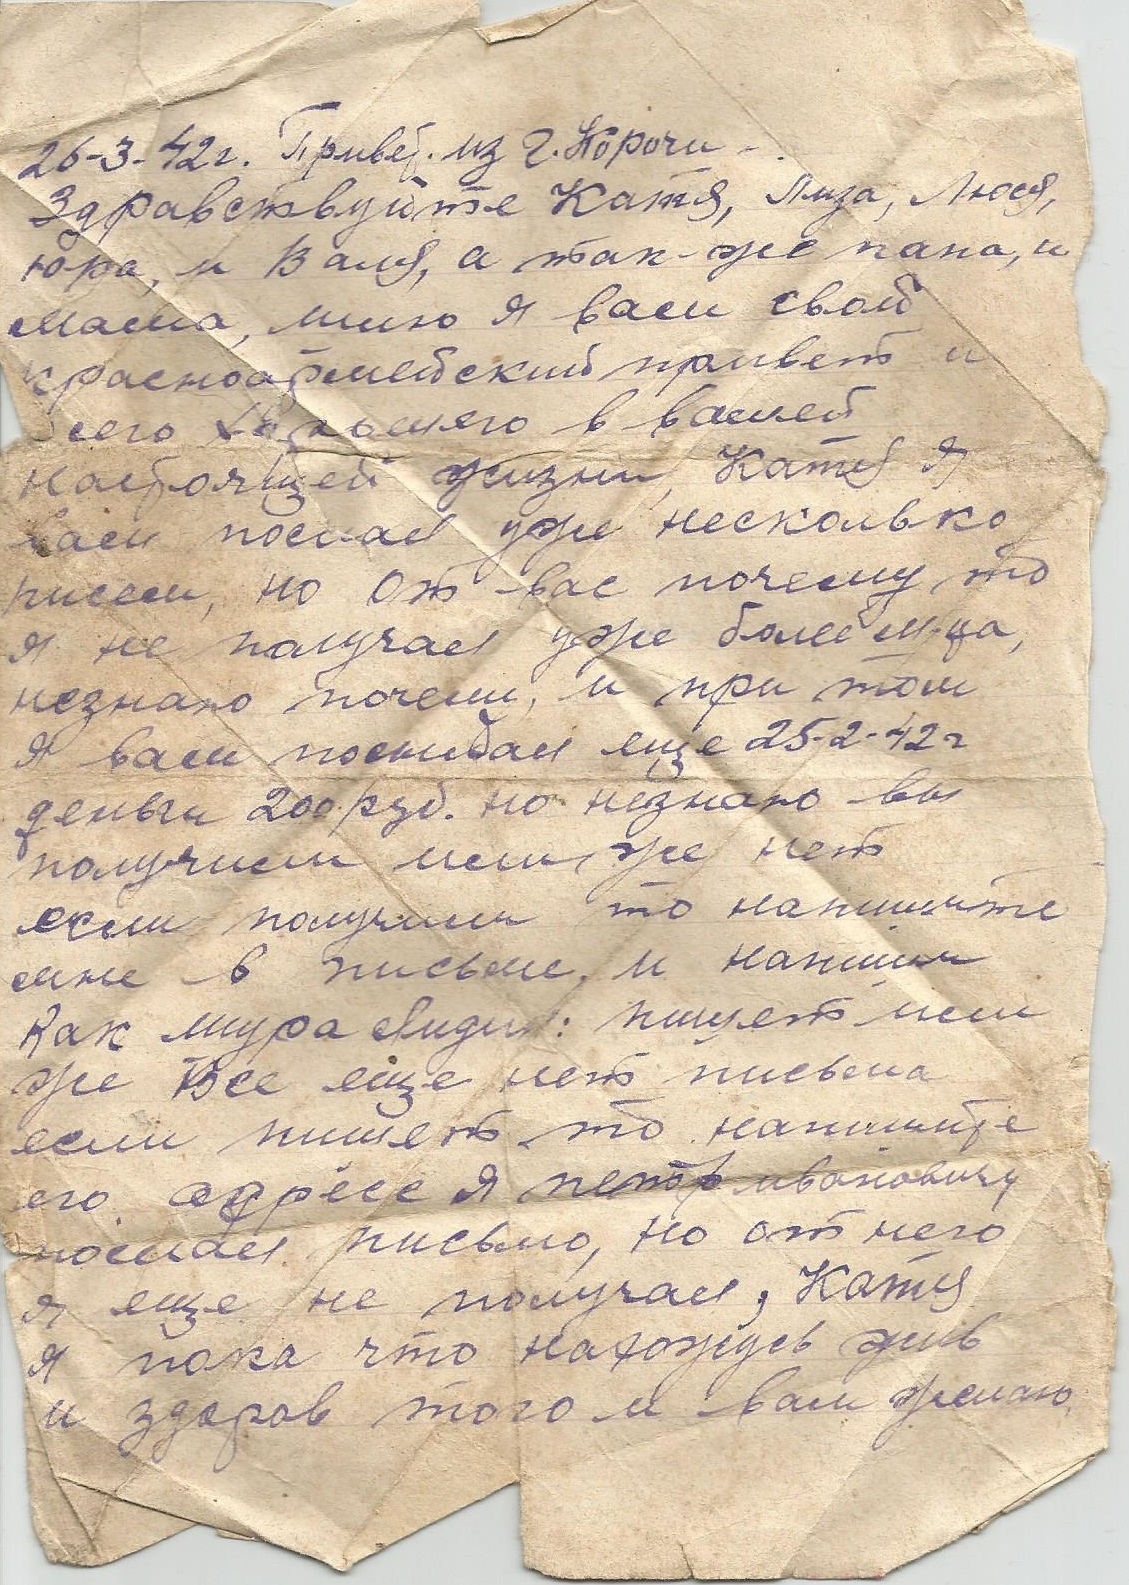 26-3-42г. Привет из г. Корочи -.
Здравствуйте Катя, Лиза, Люся,
Юра, и Валя, а так-же папа, и
мама, шлю я вам свой
красноармейский привет и
всего хорошего в вашей
настоящей жизни, Катя я
вам послал уже несколько
писем, но от вас почему то
я не получал уже более м-ца,
незнаю почему, и при том
я вам посылал еще 25-2-42г
деньги 200 руб. но незнаю вы
получили или же нет
если получили то напишите
мне в письме, и напиши
Как Шура пишет или
же Все еще нет письма
если пишет то напишите
его адрес я петр ивановичу
послал письмо, но от него
я еще не получал, Катя
я пока что нахожусь жив
и здоров того и вам желаю